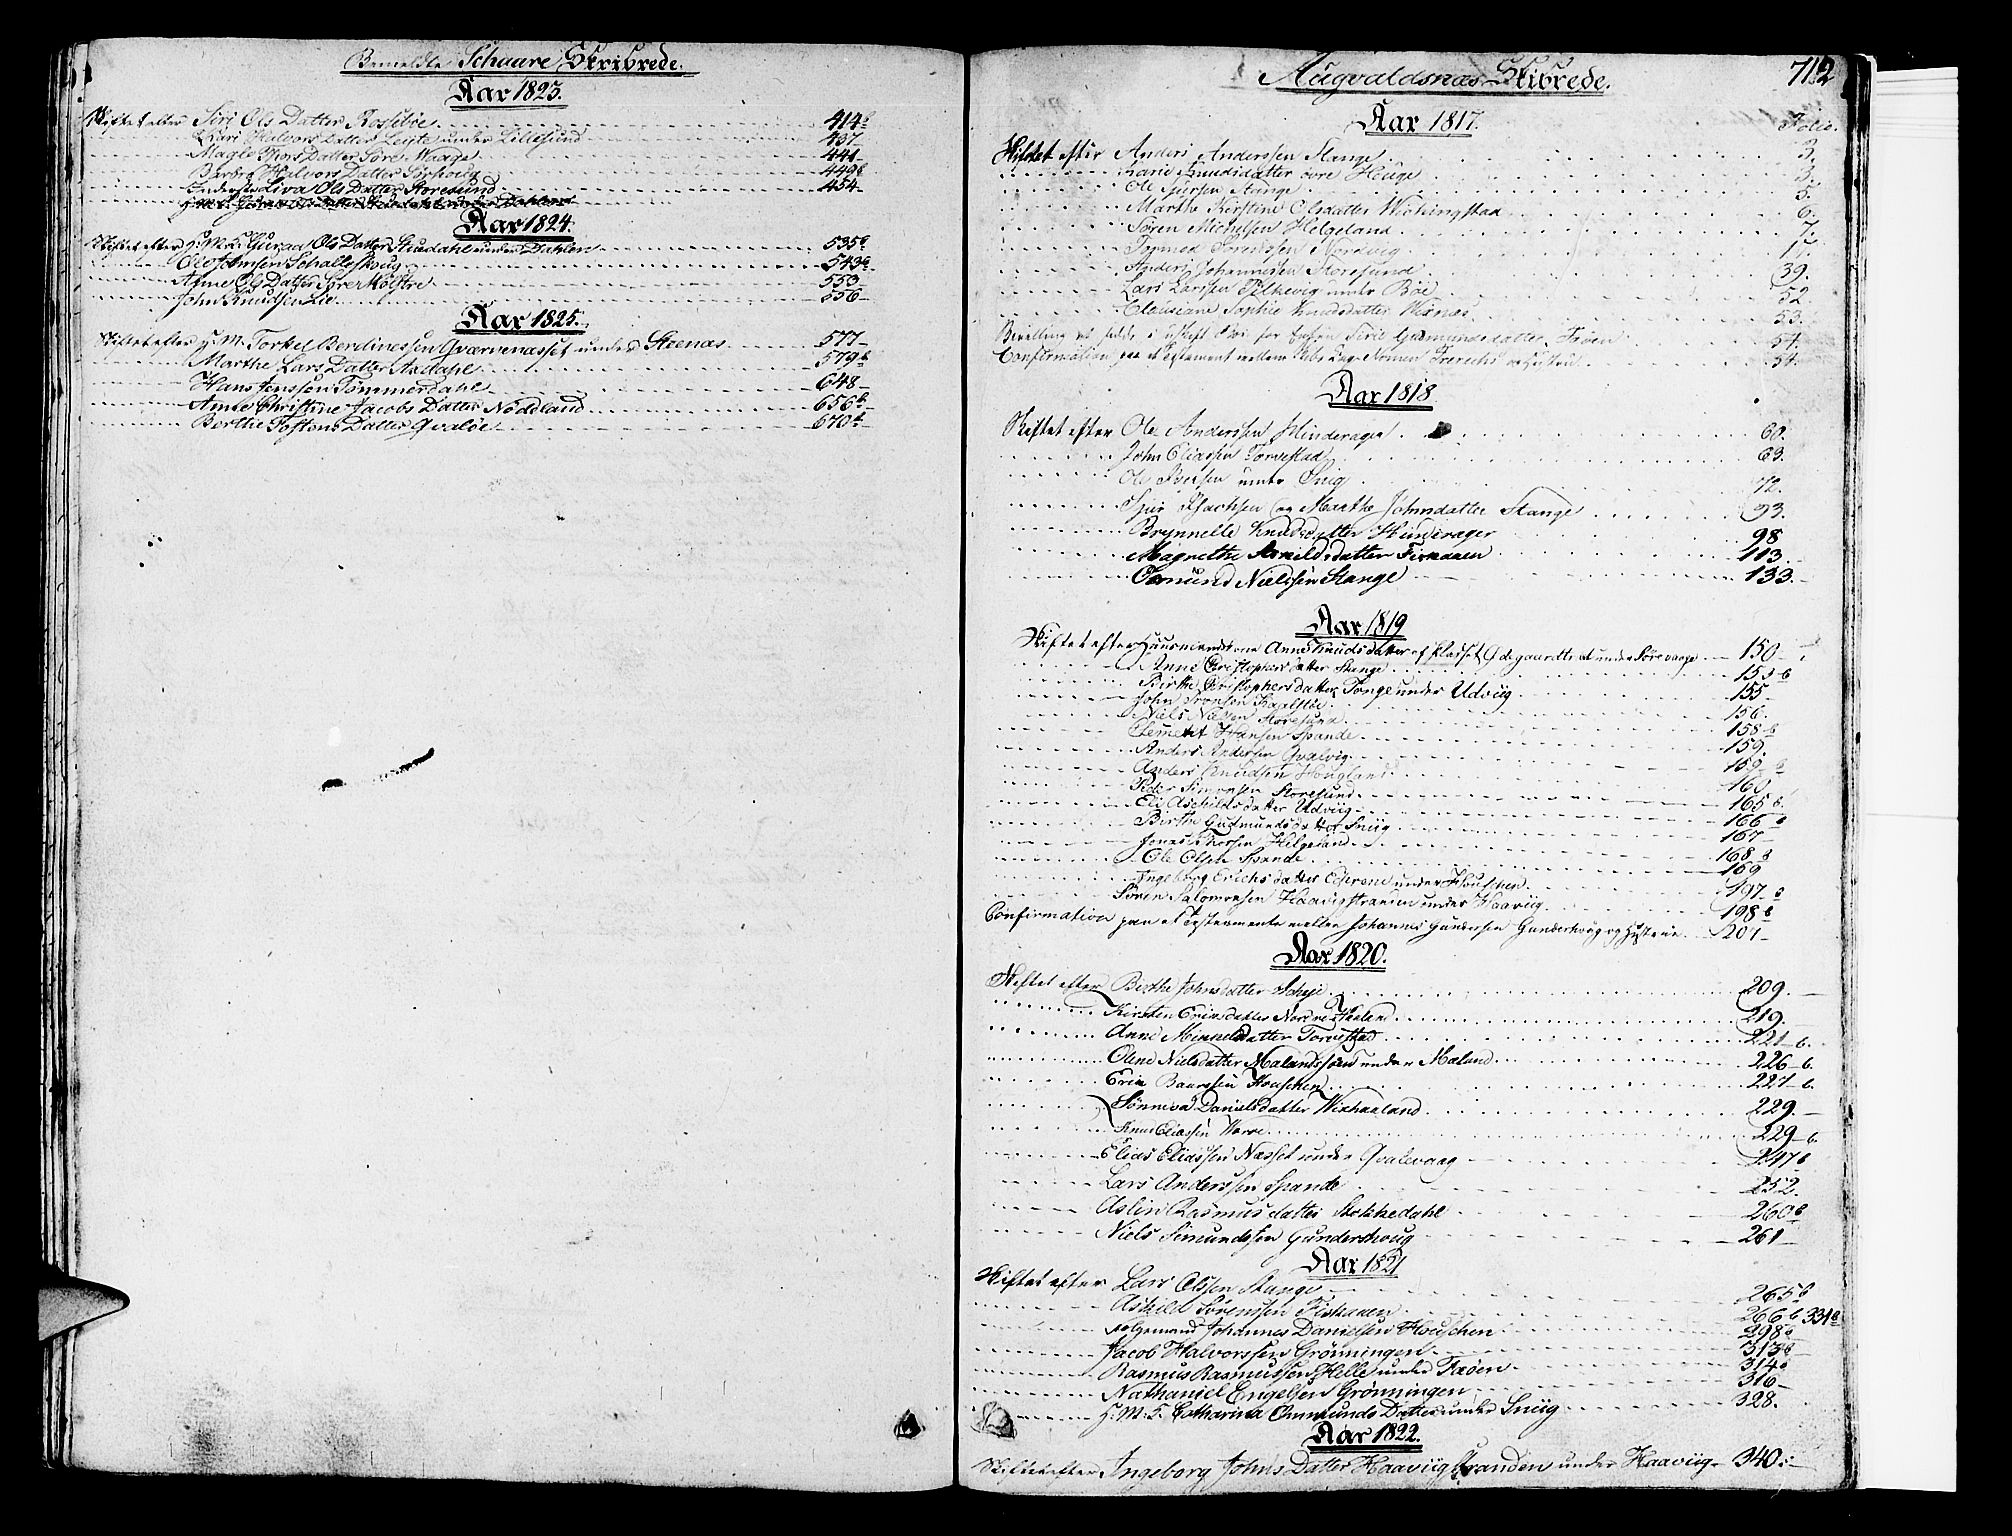 Bemeldte Schaare Skibrede.
Aar 1823.
Skiftet efter Siri Ols Datter Rossebøe 414b
Kari Halvors Datter Løyte under Lillesund 437
Magle Thors Datter Søre Waage 441
Barbro Halvors Datter 449b
Inderste Liva Ols Datter Storesund 454
Aar 1824.
Skiftet efter H.M.K. Guroe Ols Datter Stuedahl under Dahlen 535b
Ole Johnsen Schalleskoug 543b
Anne Ols Datter Søre Kolstøe 553
John Knudsen Lie 556
Aar 1825.
Skiftet efter H.M. Torkel Berdinessen Qværvenæsset under Steenæs 577
Marthe Lars Datter Axdahl 579b
Hans Jenssen Tømmerdahl 648
Anne Christine Jacobs Datter Nødland 656b
Berthe Tostens Datter Qvaløe 670b
Augvaldsnæs Skibrede. 712
Aar 1817. Folio.
Skiftet efter Anders Anderssen Stange 3.
Kari Knudsdatter øvre Hauge 3.
Ole Sjursen Stange 5.
Marthe Kirstine Olsdatter Wichingstad 6.
Søren Michelsen Helgeland 7.
Tormod Sørenssen Nordvig 17.
Anders Johannessen Storesund 39.
Lars Larssen Selkevig under Bøe 52.
Clausiane Sophie Knudsdatter Wixnæs 53.
Bevilling at sidde i uskift Boe for Enken Siri Gudmundsdatter Frøen 54.
Confirmation paa et Testament mellem Peder Aage Nomen Frerichs og Hustrue 54.
Aar 1818.
Skiftet efter Ole Anderssen Hinderager 60.
John Eliassen Torvestad 63.
Ole Iversen under Sniig 72.
Sjur Isachsen og Marthe Johnsdatter Stange 93.
Brynnelle Knudsdatter Hinderager 98
Magrethe Arnildsdatter Fiskaaen 113.
Osmund Nielssen Stange 133.
Aar 1819
Skiftet efter Huusmandskone Anne Knudsdatter af Pladset Ødegaardtræet under Sørevaage 150
Anne Christophersdatter Stange 153b
Birthe Christophersdatter Tonge under Udviig 155
John Iversen Kaalstøe 156.
Niels Nielsen Storesund 158b
Clemet Hansen Spande 159.
Anders Andersen Qvalvig 159b
Anders Knudsen Hougland 160
Peder Simonsen Storesund 165b.
Eli Aschildsdatter Udviig 166b
Birthe Gudmundsdatter Sniig 167
Jonas Thorsen Helgeland 168b
Ole Olsen Spande 169
Ingeborg Erichsdatter Ederene under Houschen 197b
Søren Salomonsen Haavigstranden under Haaviig 198b
Confirmation paa et Testamente mellem Johannes Gundersen Gunderhoug og Hustrue 207
Aar 1820.
Skiftet efter Birthe Johnsdatter Scheje 209.
Kirsten Ericsdatter Nordre Haaland 219.
Anne Mikkelsdatter Torvestad 221b.
Olene Nielsdatter Malandsøen under Maland 226b.
Eric Baarssen Houschen 227b.
Sønneva Danielsdatter Wixhaaland 229.
Knud Eliassen Norve 229b.
Elias Eliassen Næsset under Qvalevaag 247b
Lars Anderssen Spande 252.
Aslin Rasmusdatter Stokkedahl 260b
Niels Simundssen Gunderhoug 261
Aar 1821
Skiftet efter Lars Olssen Stange 265b
Askild Sørenssen Fiskaaen 266b 334b
Folgemand Johannes Danielsen Houschen 298b
Jacob Halvorssen Grønningen 313b
Rasmus Rasmussen Helle under Fæøen 314b
Nathaniel Engelsen Grønningen 316
H.M.K. Catharina Ommunds Datter under Sniig 328.
Aar 1822.
Skiftet efter Ingeborg Johns Datter Haaviigstranden under Haaviig 340